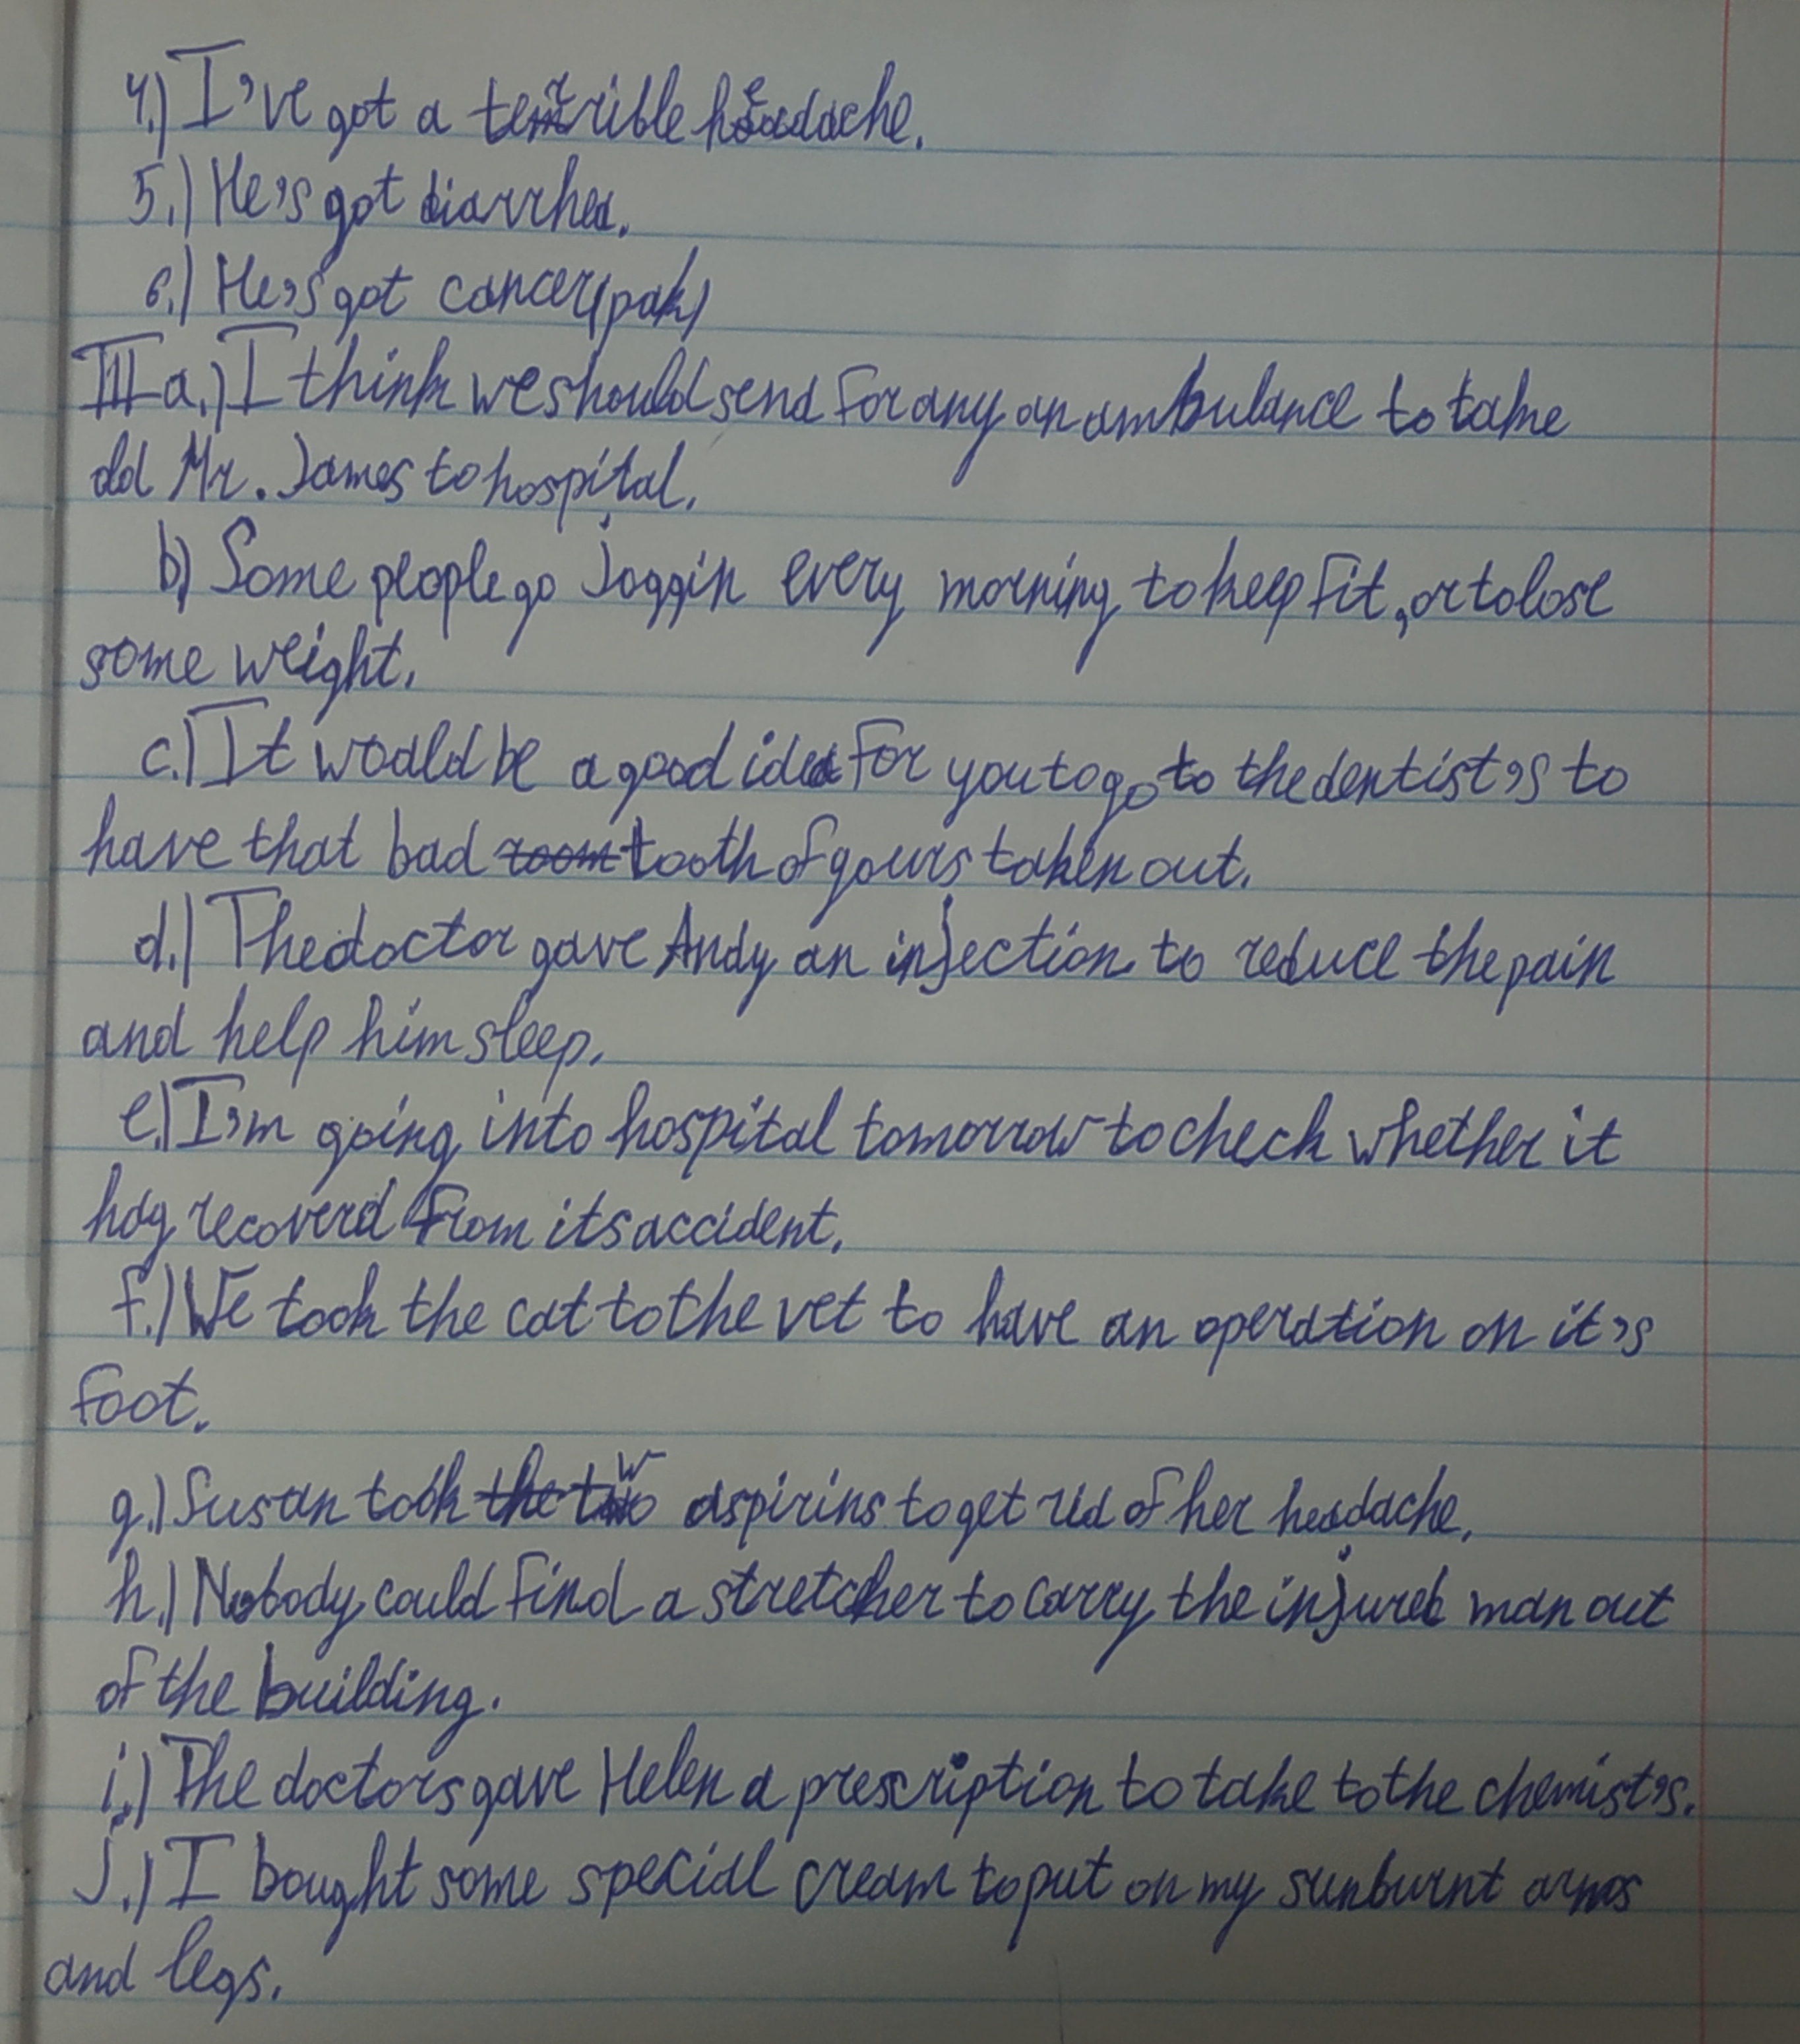 4.) I've got a terrible headache.
5.) He's got diarrhea.
6.) He's got cancer (рак)
III a.) I think we should send for any an ambulance to take
old Mr. James to hospital.
b) Some people go joggin every morning to keep fit, or to lose
some weight.
c.) It woald be a good idea for you to go to the dentist's to
have that bad room tooth of yours taken out.
d.) The doctor gave Andy an injection to reduce the pain
and help him sleep.
e.) I'm going into hospital tomorrow to check whether it
hag recoverd from its accident.
f.) We took the cat to the vet to have an operation on it's
foot.
g.) Susan took the two aspirins to get rid of her headache.
h.) Nobody could find a stretcher to carry the injured man out
of the building.
i.) The doctors gave Helen a prescription to take to the chemist's.
j.) I bought some special cream to put on my sunburnt arms
and legs.